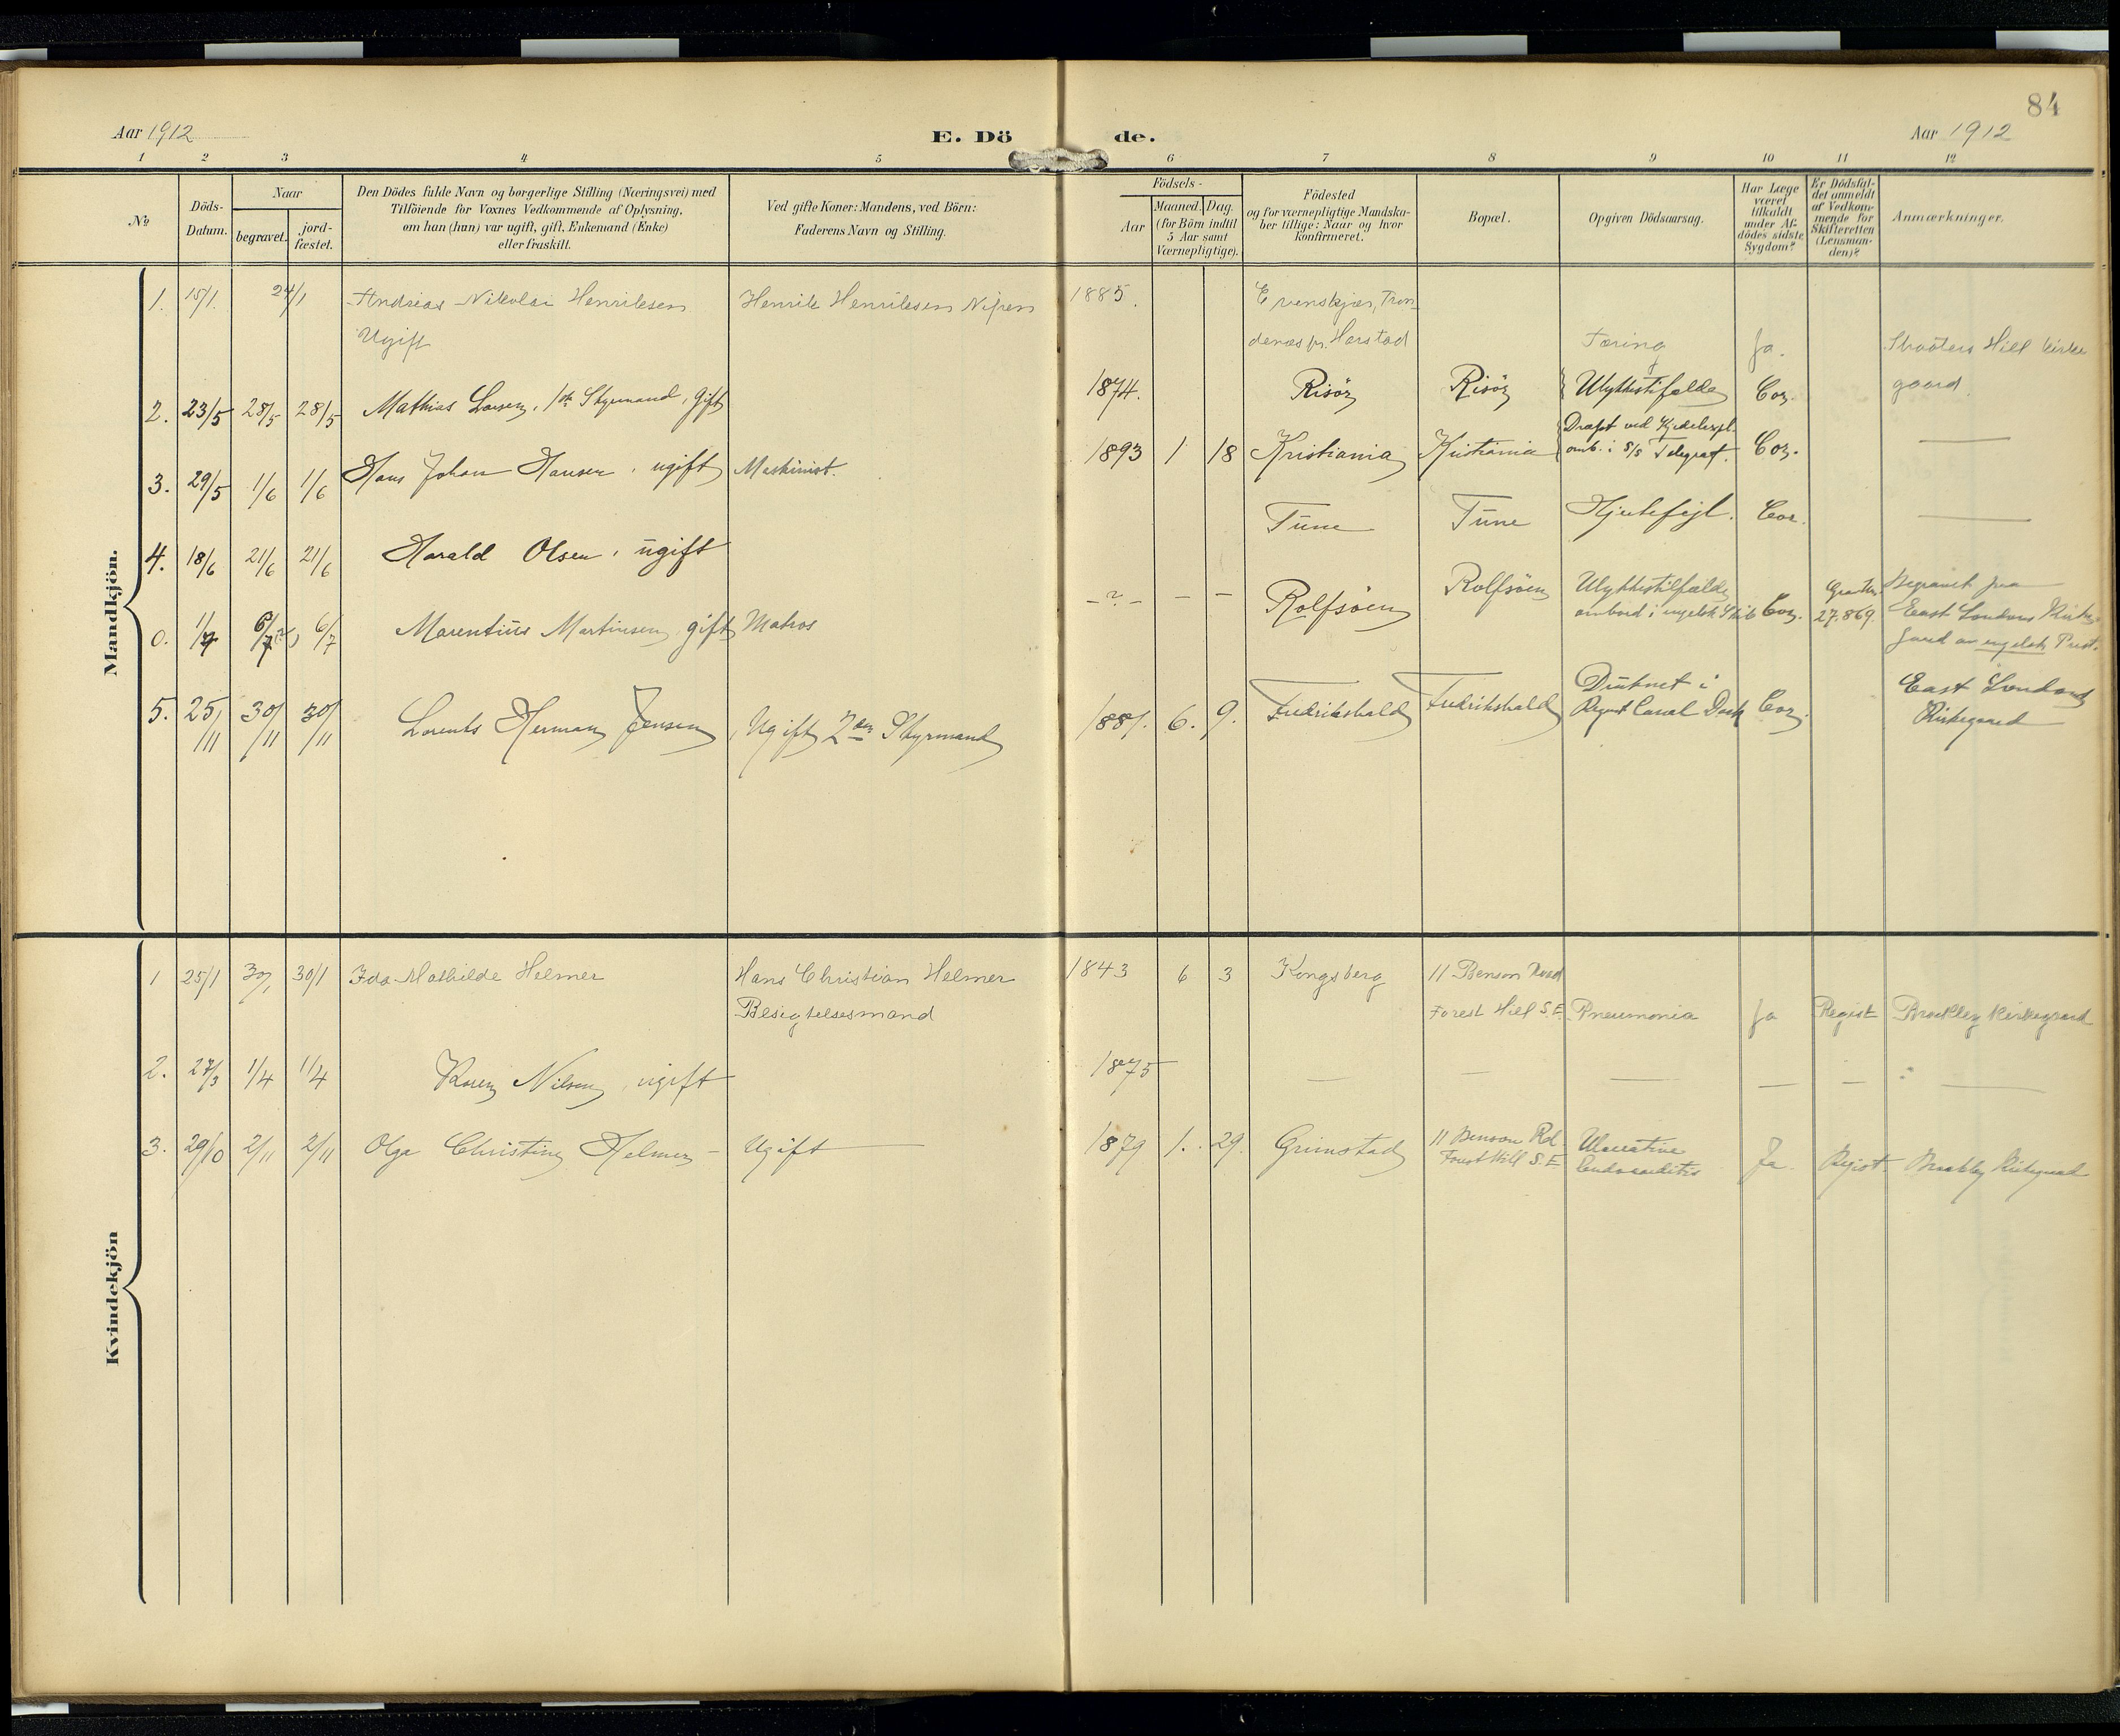 84
Aar 1912
E. Dö de.
Aar 1912
1 2 3 4 5 6 7 8 9 10 11 12
No.
Döds-
Datum.
Naar
begravet.
jord-
fæstet.
Den Dödes fulde Navn og borgerlige Stilling (Næringsvei) med
Tilföiende for Voxnes Vedkommende af Oplysning,
om han (hun) var ugift, gift, Enkemand (Enke)
eller fraskilt.
Ved gifte Koner: Mandens, ved Börn:
Faderens Navn og Stilling.
Födsels-
Aar
Maaned. Dag.
(for Börn indtil
5 Aar samt
Værnepligtige).
Födested
og for værnepligtige Mandska-
ber tillige: Naar og hvor
konfirmeret.
Bopæl.
Opgiven Dödsaarsag.
Har Læge
været
tilkaldt
under Af-
dödes sidste
Sygdom?
Er Dödsfal-
det anmeldt
af Vedkom-
mende for
Skifteretten
(Lensman-
den)?
Anmærkninger.
Mandkjön.
1. 15/1. 24/1 Andreas Nikolai Henriksen Henrik Henriksen Nipen 1885. Evenskjær, Tron-
Ugift denæs pr. Harstad Tæring Ja. Streatens Hill Kirke
gaard
2. 23/5 28/5 28/5 Mathias Larsen, 1ste Styrmand, gift 1874. Risör Risör Ulykkestilfælde Cor.
3. 29/5 1/6 1/6 Hans Johan Hansen, ugift Maskinist. 1893 1 18 Kristiania Kristiania Dræpt ved Kjedelexpl.
omb. i S/S Telegraf. Cor. —
4. 18/6 21/6 21/6 Harald Olsen, ugift Tune Tune Cor. —
0. 1/7 6/7 6/7 Marentius Martinsen, gift Matros -?- - - Rolfsöen Rolfsöen Ulykkestilfælde
ombord i engelsk Skib Cor. 27.869. Begravet paa
East Londons Kirke-
gaard av engelsk Prest.
5. 25/11 30/11 30/11 Lorents Herman Jensen, Ugift 2den Styrmand 1881. 6. 9. Fredrikshald Fredrikshald Druknet i
Regent Canal Dock Cor. East Londons
Kirkegaard
Kvindekjön
1 25/1 30/1 30/1 Ida Mathilde Helmer Hans Christian Helmer 1843 6 3 Kongsberg 11 Benson Road
Besigtelsesmand Forest Hill S.E. Pneumonia Ja Regist Brockley Kirkegaard
2. 27/3 1/4 1/4 Karen Nilsen, ugift 1875 — — — — — —
3. 29/10 2/11 2/11 Olga Christine Helmer - Ugift — 1879 1. 29. Grimstad 11 Benson Rd
Forest Hill S.E. Ulcerative
Endocarditis Ja. Regist. Brockley Kirkegaard